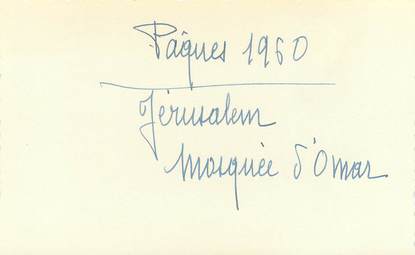 Pâques 1960
Jérusalem
Mosquée d'Omar